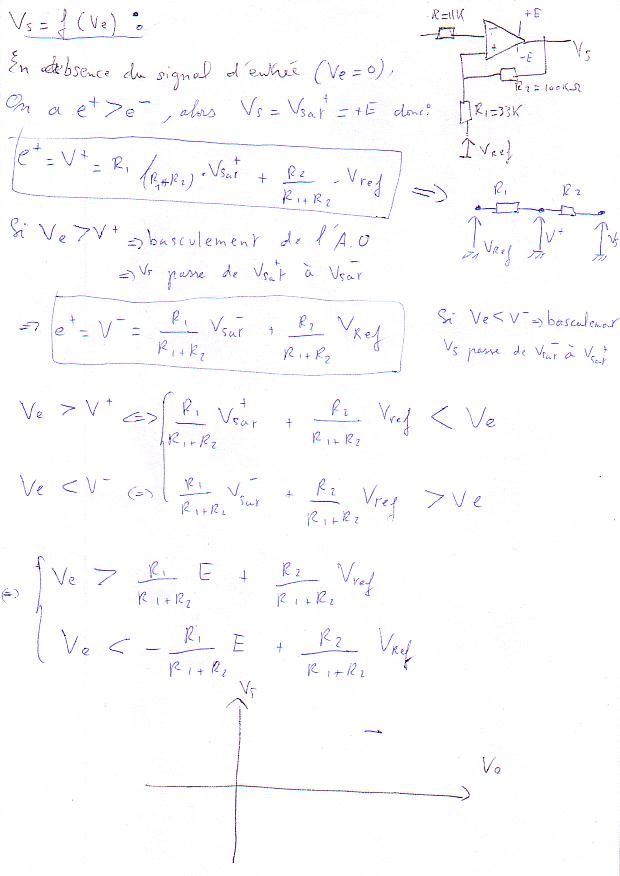 Vs = f (Ve) :
En absence du signal d'entrée (Ve = 0),
On a e⁺ > e⁻, alors Vs = Vsat⁺ = +E donc :
e⁺ = V⁺ = R1/(R1+R2) · Vsat⁺ + R2/(R1+R2) · Vref =>
Si Ve > V⁺ => basculement de l'A.O
=> Vs passe de Vsat⁺ à Vsat⁻
=> e⁺ = V⁻ = R1/(R1+R2) Vsat⁻ + R2/(R1+R2) VRef
Si Ve < V⁻ => basculement
Vs passe de Vsat⁻ à Vsat⁺
Ve > V⁺ <=> R1/(R1+R2) Vsat⁺ + R2/(R1+R2) Vref < Ve
Ve < V⁻ <=> R1/(R1+R2) Vsat⁻ + R2/(R1+R2) Vref > Ve
<=> { Ve > R1/(R1+R2) E + R2/(R1+R2) Vref
Ve < - R1/(R1+R2) E + R2/(R1+R2) VRef
Vs
Ve
R=11K
+E
-
+
-E
Vs
R2=100KΩ
R1=33K
VRef
R1
R2
VRef
V⁺
Vs